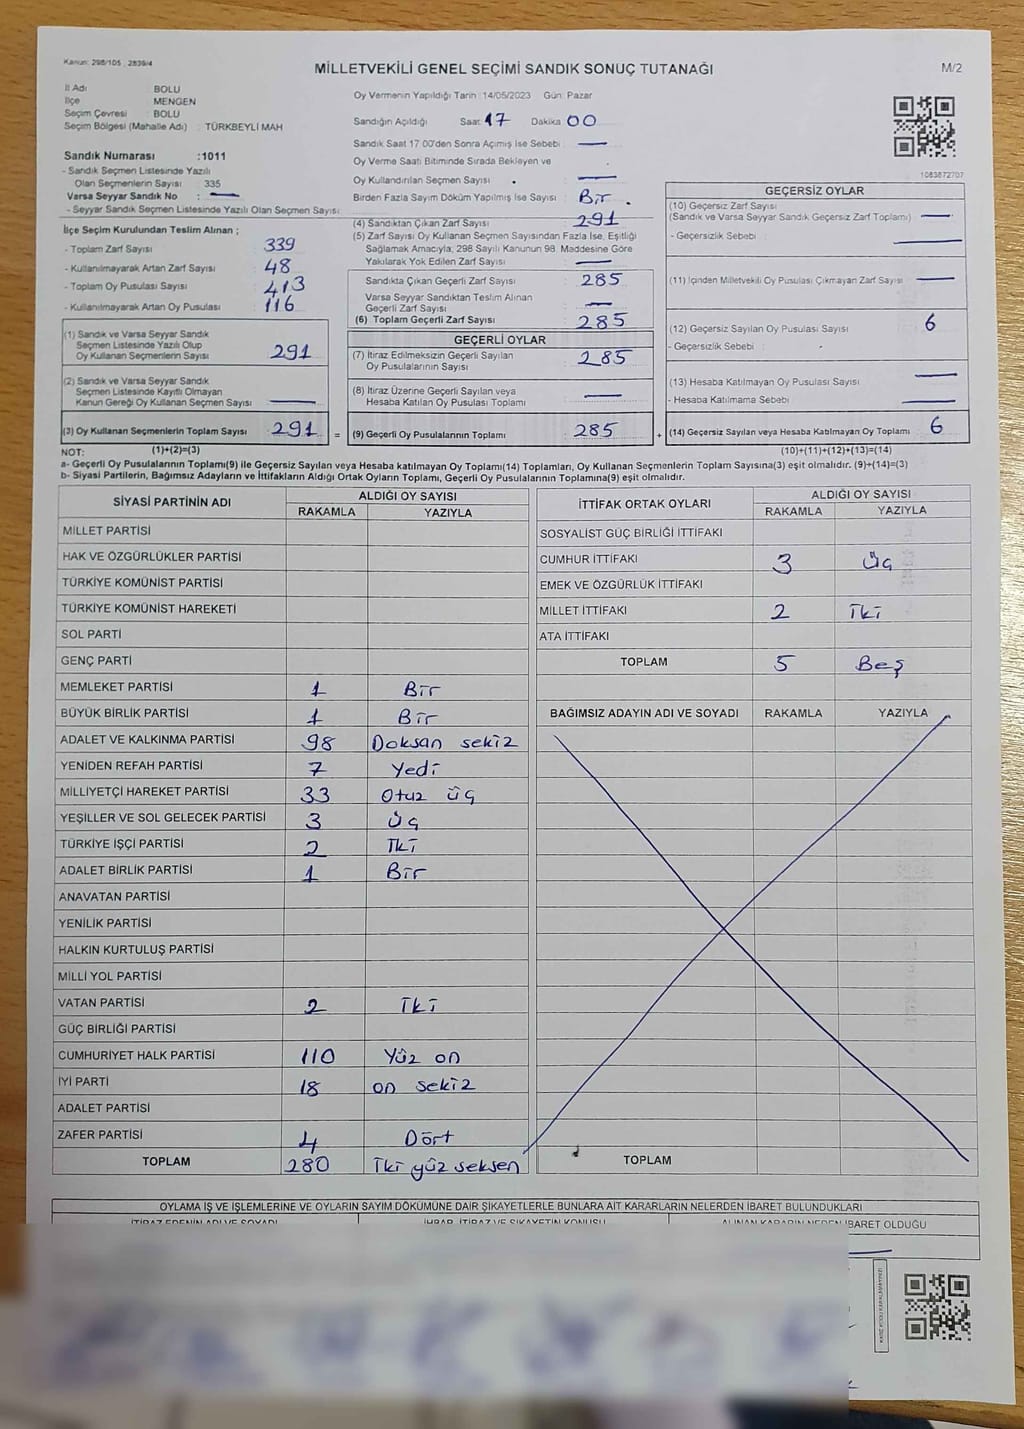 Kanun: 298/105 , 2839/4
MİLLETVEKİLİ GENEL SEÇİMİ SANDIK SONUÇ TUTANAĞI
M/2
İl Adı BOLU
İlçe MENGEN
Seçim Çevresi : BOLU
Seçim Bölgesi (Mahalle Adı) : TÜRKBEYLİ MAH
Sandık Numarası :1011
- Sandık Seçmen Listesinde Yazılı
Olan Seçmenlerin Sayısı : 335
Varsa Seyyar Sandık No : —
- Seyyar Sandık Seçmen Listesinde Yazılı Olan Seçmen Sayısı
İlçe Seçim Kurulundan Teslim Alınan ;
- Toplam Zarf Sayısı 339
- Kullanılmayarak Artan Zarf Sayısı 48
- Toplam Oy Pusulası Sayısı 413
- Kullanılmayarak Artan Oy Pusulası 116
(1) Sandık ve Varsa Seyyar Sandık
Seçmen Listesinde Yazılı Olup
Oy Kullanan Seçmenlerin Sayısı 291
(2) Sandık ve Varsa Seyyar Sandık
Seçmen Listesinde Kayıtlı Olmayan
Kanun Gereği Oy Kullanan Seçmen Sayısı —
(3) Oy Kullanan Seçmenlerin Toplam Sayısı : 291 =
Oy Vermenin Yapıldığı Tarih :14/05/2023 Gün: Pazar
Sandığın Açıldığı Saat: 17 Dakika 00
Sandık Saat 17 00'den Sonra Açımış İse Sebebi : —
Oy Verme Saati Bitiminde Sırada Bekleyen ve
Oy Kullandırılan Seçmen Sayısı : —
Birden Fazla Sayım Döküm Yapılmış İse Sayısı : Bir
(4) Sandıktan Çıkan Zarf Sayısı : 291
(5) Zarf Sayısı Oy Kullanan Seçmen Sayısından Fazla İse, Eşitliği
Sağlamak Amacıyla, 298 Sayılı Kanunun 98. Maddesine Göre
Yakılarak Yok Edilen Zarf Sayısı : —
Sandıkta Çıkan Geçerli Zarf Sayısı : 285
Varsa Seyyar Sandıktan Teslim Alınan
Geçerli Zarf Sayısı : —
(6) Toplam Geçerli Zarf Sayısı : 285
GEÇERLİ OYLAR
(7) İtiraz Edilmeksizin Geçerli Sayılan
Oy Pusulalarının Sayısı : 285
(8) İtiraz Üzerine Geçerli Sayılan veya
Hesaba Katılan Oy Pusulası Toplamı : —
(9) Geçerli Oy Pusulalarının Toplamı : 285 +
1083872707
GEÇERSİZ OYLAR
(10) Geçersiz Zarf Sayısı
(Sandık ve Varsa Seyyar Sandık Geçersiz Zarf Toplamı) : —
- Geçersizlik Sebebi : —
(11) İçinden Milletvekili Oy Pusulası Çıkmayan Zarf Sayısı : —
(12) Geçersiz Sayılan Oy Pusulası Sayısı : 6
- Geçersizlik Sebebi :
(13) Hesaba Katılmayan Oy Pusulası Sayısı : —
- Hesaba Katılmama Sebebi : —
(14) Geçersiz Sayılan veya Hesaba Katılmayan Oy Toplamı : 6
NOT: (1)+(2)=(3) (10)+(11)+(12)+(13)=(14)
a- Geçerli Oy Pusulalarının Toplamı(9) ile Geçersiz Sayılan veya Hesaba katılmayan Oy Toplamı(14) Toplamları, Oy Kullanan Seçmenlerin Toplam Sayısına(3) eşit olmalıdır. (9)+(14)=(3)
b- Siyasi Partilerin, Bağımsız Adayların ve İttifakların Aldığı Ortak Oyların Toplamı, Geçerli Oy Pusulalarının Toplamına(9) eşit olmalıdır.
SİYASİ PARTİNİN ADI ALDIĞI OY SAYISI
RAKAMLA YAZIYLA
MİLLET PARTİSİ
HAK VE ÖZGÜRLÜKLER PARTİSİ
TÜRKİYE KOMÜNİST PARTİSİ
TÜRKİYE KOMÜNİST HAREKETİ
SOL PARTİ
GENÇ PARTİ
MEMLEKET PARTİSİ 1 Bir
BÜYÜK BİRLİK PARTİSİ 1 Bir
ADALET VE KALKINMA PARTİSİ 98 Doksan sekiz
YENİDEN REFAH PARTİSİ 7 Yedi
MİLLİYETÇİ HAREKET PARTİSİ 33 Otuz üç
YEŞİLLER VE SOL GELECEK PARTİSİ 3 üç
TÜRKİYE İŞÇİ PARTİSİ 2 İki
ADALET BİRLİK PARTİSİ 1 Bir
ANAVATAN PARTİSİ
YENİLİK PARTİSİ
HALKIN KURTULUŞ PARTİSİ
MİLLİ YOL PARTİSİ
VATAN PARTİSİ 2 İki
GÜÇ BİRLİĞİ PARTİSİ
CUMHURİYET HALK PARTİSİ 110 Yüz on
İYİ PARTİ 18 on sekiz
ADALET PARTİSİ
ZAFER PARTİSİ 4 Dört
TOPLAM 280 İki yüz seksen
İTTİFAK ORTAK OYLARI ALDIĞI OY SAYISI
RAKAMLA YAZIYLA
SOSYALİST GÜÇ BİRLİĞİ İTTİFAKI
CUMHUR İTTİFAKI 3 üç
EMEK VE ÖZGÜRLÜK İTTİFAKI
MİLLET İTTİFAKI 2 İki
ATA İTTİFAKI
TOPLAM 5 Beş
BAĞIMSIZ ADAYIN ADI VE SOYADI RAKAMLA YAZIYLA
TOPLAM
OYLAMA İŞ VE İŞLEMLERİNE VE OYLARIN SAYIM DÖKÜMÜNE DAİR ŞİKAYETLERLE BUNLARA AİT KARARLARIN NELERDEN İBARET BULUNDUKLARI
İTİRAZ EDENİN ADI VE SOYADI İHBAR, İTİRAZ VE ŞİKAYETİN KONUSU ALINAN KARARIN NEDEN İBARET OLDUĞU